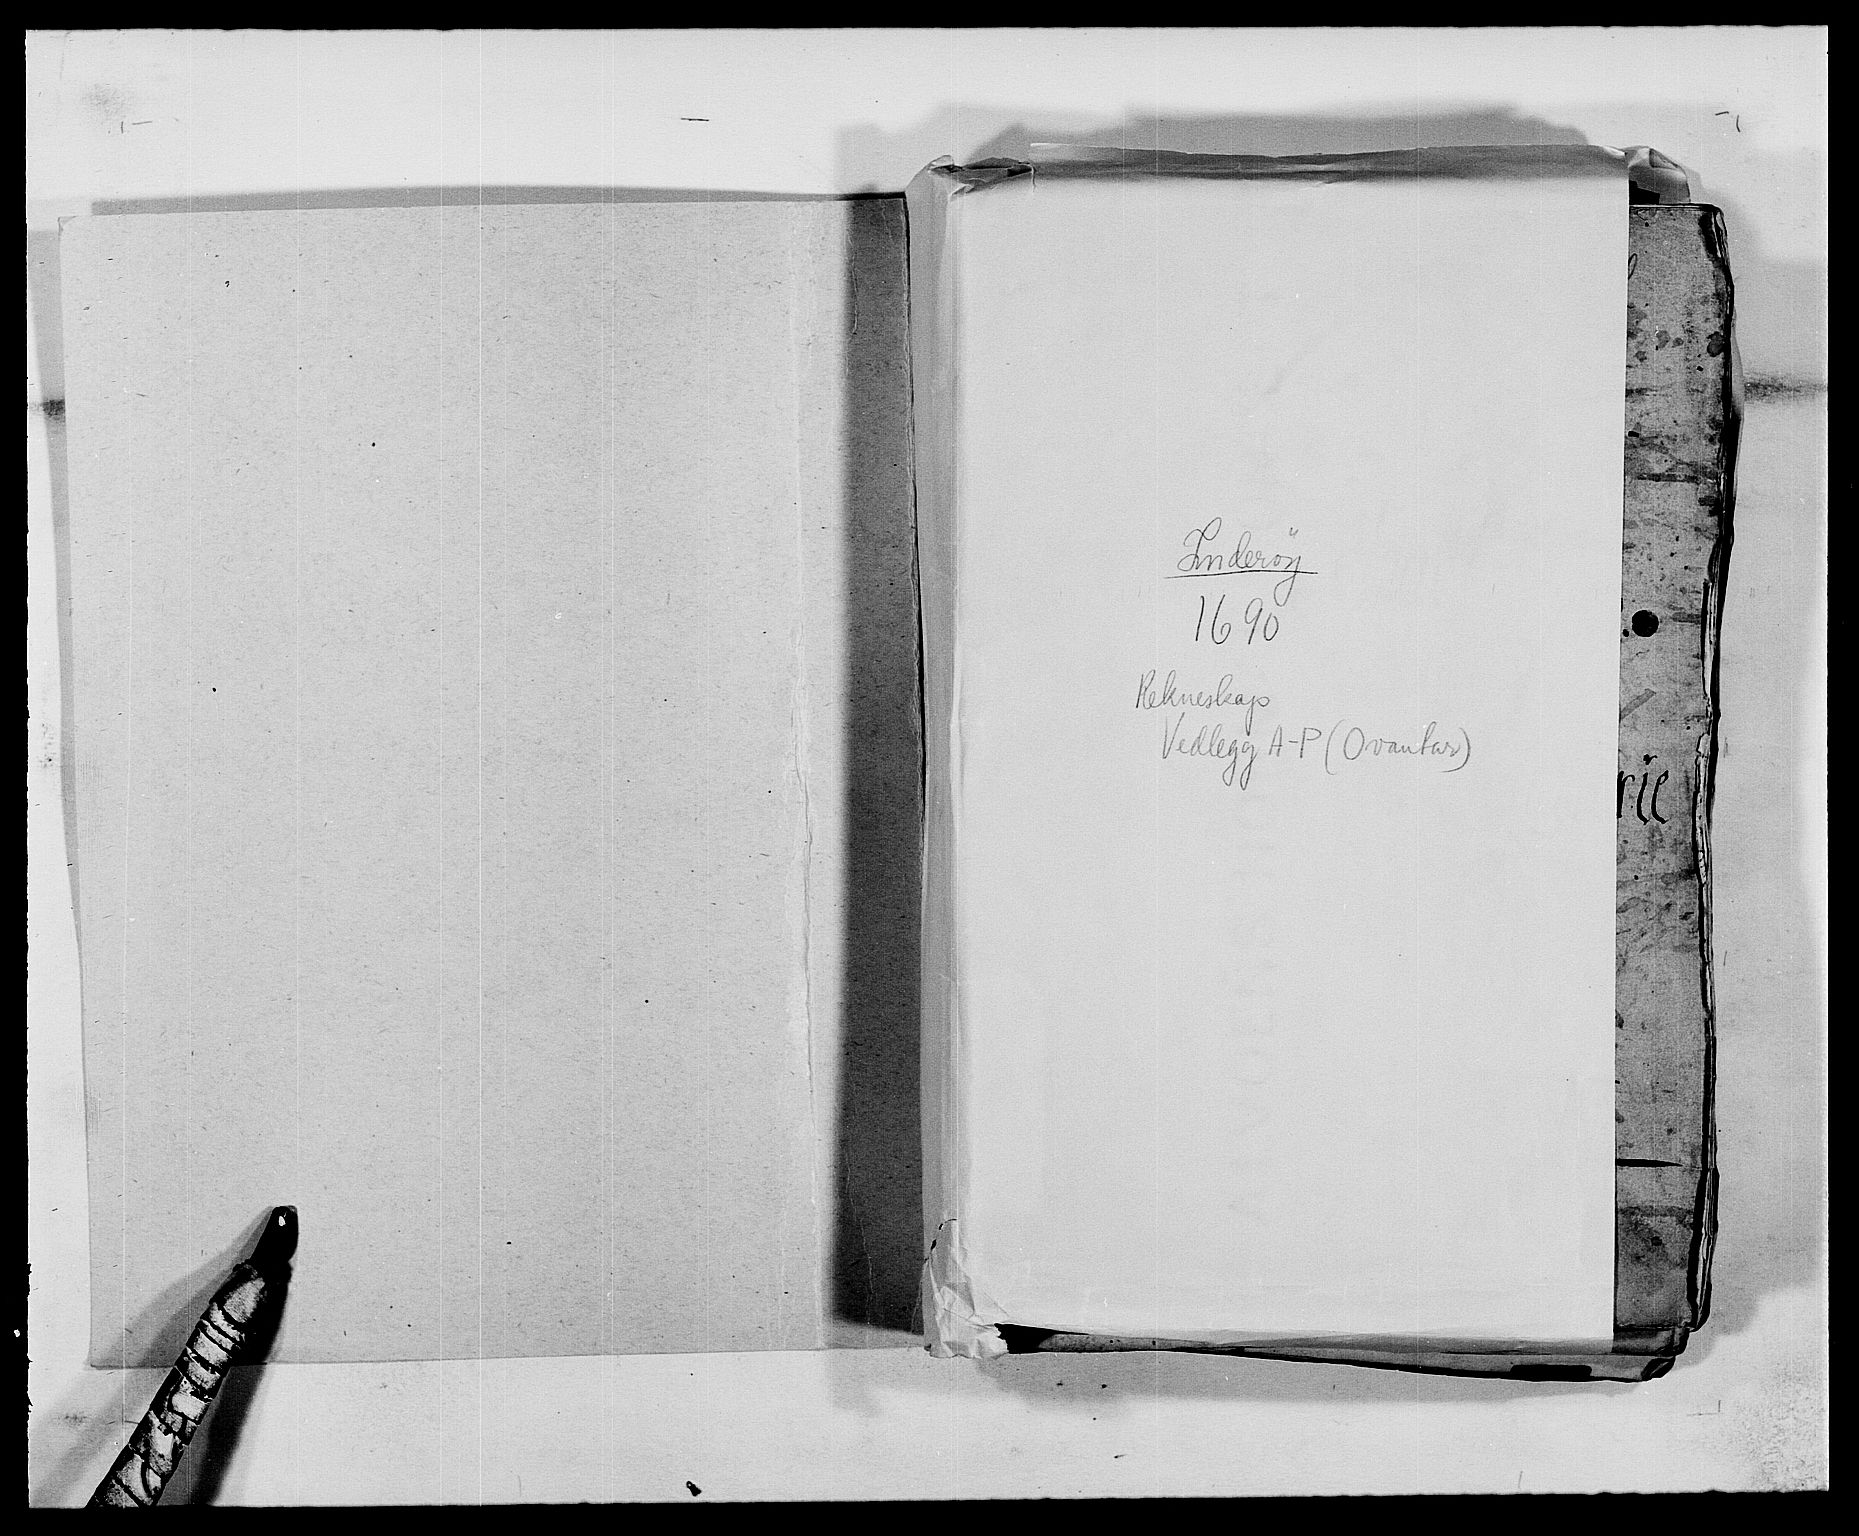 Inderöy
1690
Rekneskap
Vedlegg A-P (O vantar)
rie